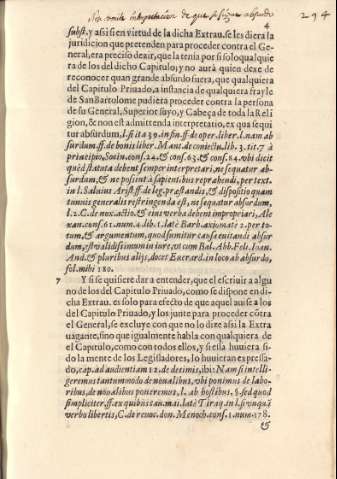 294
4
subst. y assi si en virtud de la dicha Extrau. se les diera la
juridicion que pretenden para proceder contra el Gene-
neral, era preciso dezir, que la tenia por si solo qualquie
ra de los del dicho Capitulo; y no aurà quien dexe de
reconocer quan grande absurdo fuera, que qualquiera
del Capitulo Priuado, a instancia de qualquiera frayle
de San Bartolome pudiera proceder contra la persona
de su General, Superior suyo, y Cabeça de toda la Reli
gion, & non est admittenda interpretatio, ex qua sequi
tur absurdum, l. si ita 39. in fin. ff. de oper. liber. l. nam ab
surdum ff. de bonis liber. Mant. de coniectu. lib. 3. tit. 7 à
principio, Socin. conf. 24. & conf. 63. & conf. 84. vbi dicit
quòd statuta debent semper interpretari, ne sequatur ab-
surdum, & ne possint à sapientibus reprehendi, per text.
in l. Saluius Arist. ff. de leg. præstandis, & dispositio quan
tumuis generalis restringenda est, ne sequatur absurdum,
l. 2. C. de nox. actio. & eius verba debent impropriari, Ale
xan. conf. 61. num. 4. lib. 1. latè Barb. axiomate 2. per to-
tum, & argumentum, quod sumitur causa euitandi absur
dum, est validissimum in iure, vt cum Bal. Abb. Feli. Ioan.
And. & pluribus alijs, docet Euerard. in loco ab absurdo,
fol. mihi 180.
7 Y si se quisiere dar a entender, que el escriuir a algu
no de los del Capitulo Priuado, como se dispone en di-
cha Extrau. es solo para efecto de que aquel auise a los
del Capitulo Priuado, y los junte para proceder cõtra
el General, se excluye con que no lo dize assi la Extra
uagante, sino que igualmente habla con qualquiera de
el Capitulo, como con todos ellos, y si essa huuiera si-
do la mente de los Legisladores, lo huuieran expressa-
do, cap. ad audientiam 12. de decimis, ibi: Nam si intelli-
geremus tantummodo de noualibus, vbi ponimus de labo-
ribus, de noualibus poneremus, l. ab hostibus, §. sed quod
simpliciter, ff. ex quib. caus. mai. latè Tiraq. in l. si vnquã
verbo libertis, C. de reuoc. don. Menoch. conf. 1. num. 178.
&